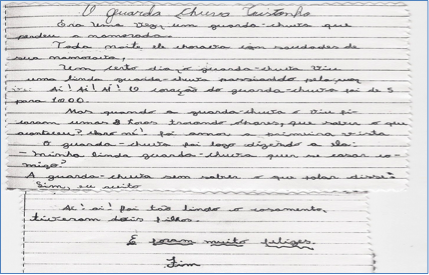 O guarda chuva tristonho
Era uma vez, um guarda-chuva que
perdeu a namorada.
Toda noite ele chorava com saudades de
sua namorada,
Um certo dia o guarda-chuva viu
uma linda guarda-chuva passeando pela
Ai! Ai! Ai! O coração do guarda-chuva foi de 5
para 1000.
Mas quando a guarda-chuva o viu fi
caram umas 8 horas trocando olhares, que sabe o que
aconteceu? né! foi amor a primeira vista
O guarda-chuva foi logo dizendo a ela:
- Minha linda guarda-chuva quer se casar co-
migo?
A guarda-chuva sem saber o que falar disse:
Sim, eu aceito
Ai! ai! foi tão lindo o casamento,
tiveram dois filhos.
E foram muito felizes.
Fim